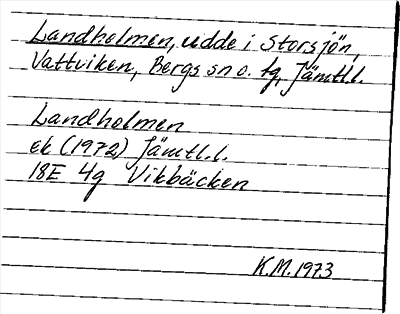 Landholmen, udde i Storsjön,
Vattviken, Bergs sn o. tg, Jämtl.l.
Landholmen
ek (1972) Jämtl.l.
18E 4g Vikbäcken
K.M. 1973